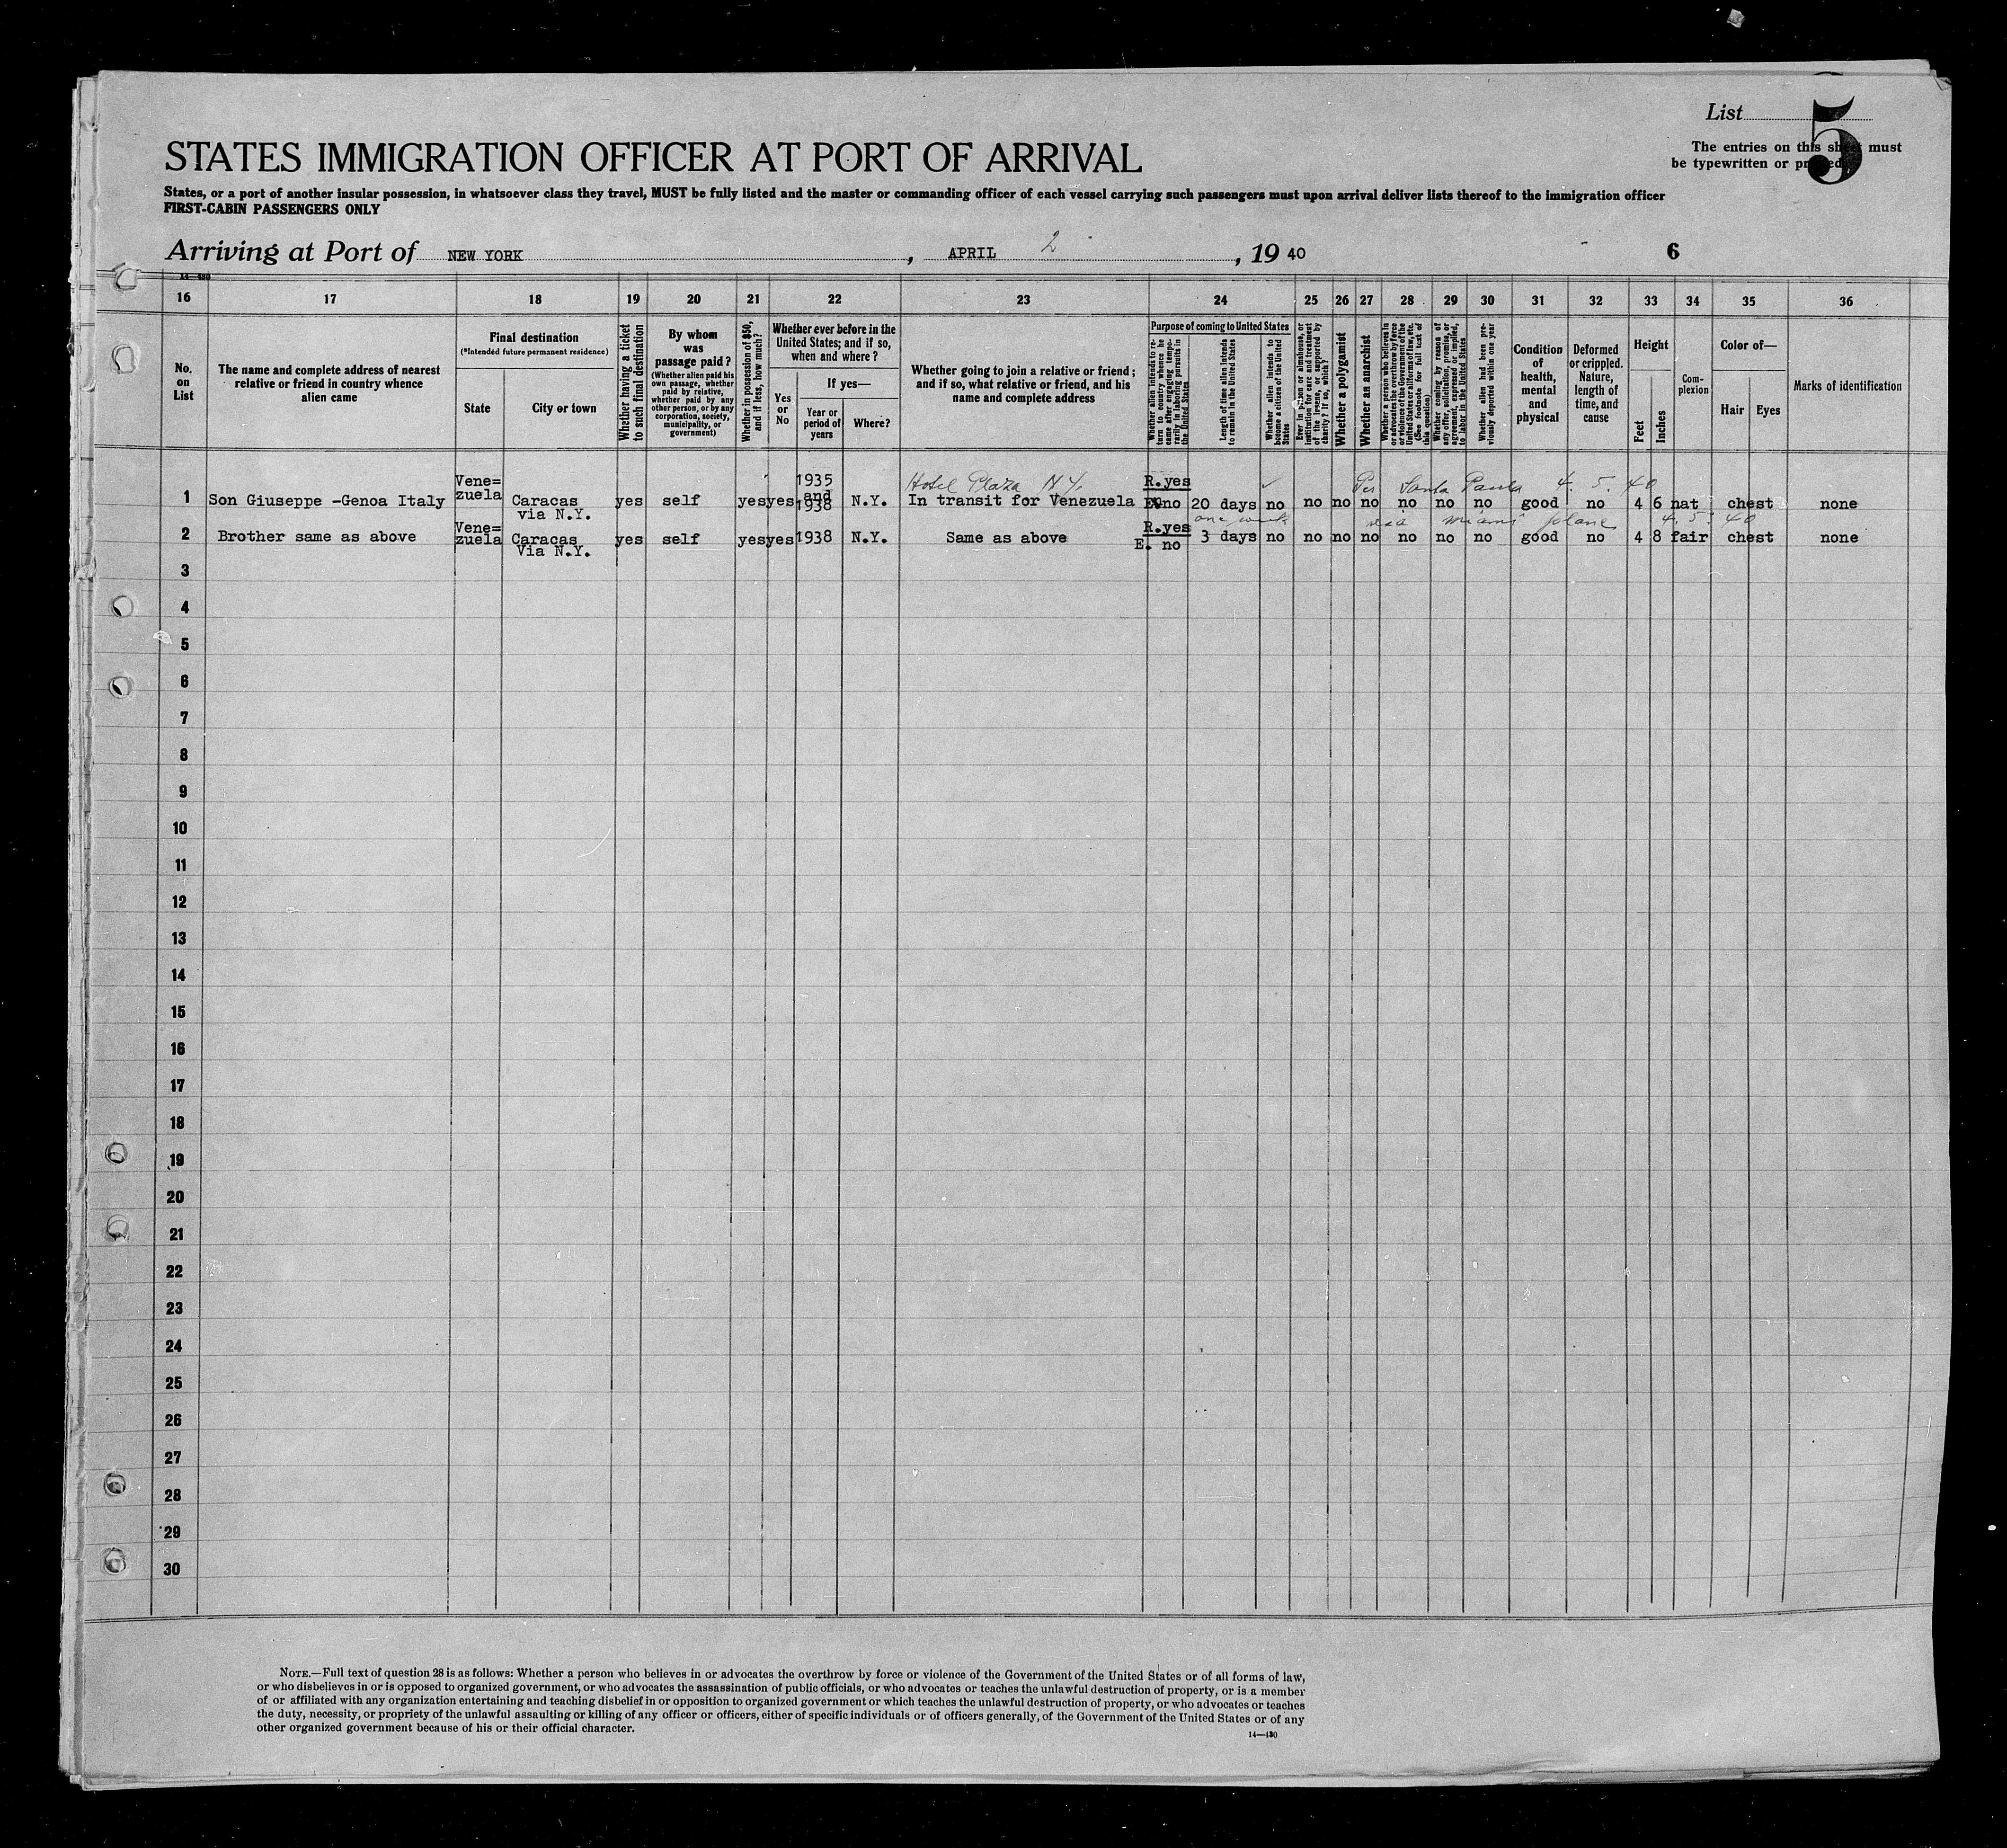 List 5
The entries on this sheet must
be typewritten or printed
STATES IMMIGRATION OFFICER AT PORT OF ARRIVAL
States, or a port of another insular possession, in whatsoever class they travel, MUST be fully listed and the master or commanding officer of each vessel carrying such passengers must upon arrival deliver lists thereof to the immigration officer
FIRST-CABIN PASSENGERS ONLY
Arriving at Port of NEW YORK, APRIL 2, 19 40 6
14—430
16 17 18 19 20 21 22 23 24 25 26 27 28 29 30 31 32 33 34 35 36
No. on List
The name and complete address of nearest relative or friend in country whence alien came
Final destination
(*Intended future permanent residence)
State
City or town
Whether having a ticket to such final destination
By whom was passage paid?
(Whether alien paid his own passage, whether paid by relative, whether paid by any other person, or by any corporation, society, municipality, or government)
Whether in possession of $50, and if less, how much?
Whether ever before in the United States; and if so, when and where?
Yes or No
If yes—
Year or period of years
Where?
Whether going to join a relative or friend; and if so, what relative or friend, and his name and complete address
Purpose of coming to United States
Whether alien intends to return to country whence he came after engaging temporarily in laboring pursuits in the United States
Length of time alien intends to remain in the United States
Whether alien intends to become a citizen of the United States
Ever in prison or almshouse, or institution for care and treatment of the insane, or supported by charity? If so, which?
Whether a polygamist
Whether an anarchist
Whether a person who believes in or advocates the overthrow by force or violence of the Government of the United States or all forms of law, etc. (See footnote for full text of this question)
Whether coming by reason of any offer, solicitation, promise, or agreement, expressed or implied, to labor in the United States
Whether alien had been previously deported within one year
Condition of health, mental and physical
Deformed or crippled. Nature, length of time, and cause
Height
Feet
Inches
Com-
plexion
Color of—
Hair Eyes
Marks of identification
Hotel Plaza N.Y. Per Santa Paula 4. 5. 40
1 Son Giuseppe -Genoa Italy Vene=zuela Caracas via N.Y. yes self yes yes 1935 and 1938 N.Y. In transit for Venezuela R.yes E.no 20 days no no no no no no no good no 4 6 nat chest none
one week via miami plane 4. 5. 40
2 Brother same as above Vene=zuela Caracas Via N.Y. yes self yes yes 1938 N.Y. Same as above R.yes E. no 3 days no no no no no no no good no 4 8 fair chest none
3
4
5
6
7
8
9
10
11
12
13
14
15
16
17
18
19
20
21
22
23
24
25
26
27
28
29
30
NOTE.—Full text of question 28 is as follows: Whether a person who believes in or advocates the overthrow by force or violence of the Government of the United States or of all forms of law,
or who disbelieves in or is opposed to organized government, or who advocates the assassination of public officials, or who advocates or teaches the unlawful destruction of property, or is a member
of or affiliated with any organization entertaining and teaching disbelief in or opposition to organized government or which teaches the unlawful destruction of property, or who advocates or teaches
the duty, necessity, or propriety of the unlawful assaulting or killing of any officer or officers, either of specific individuals or of officers generally, of the Government of the United States or of any
other organized government because of his or their official character.
14—430